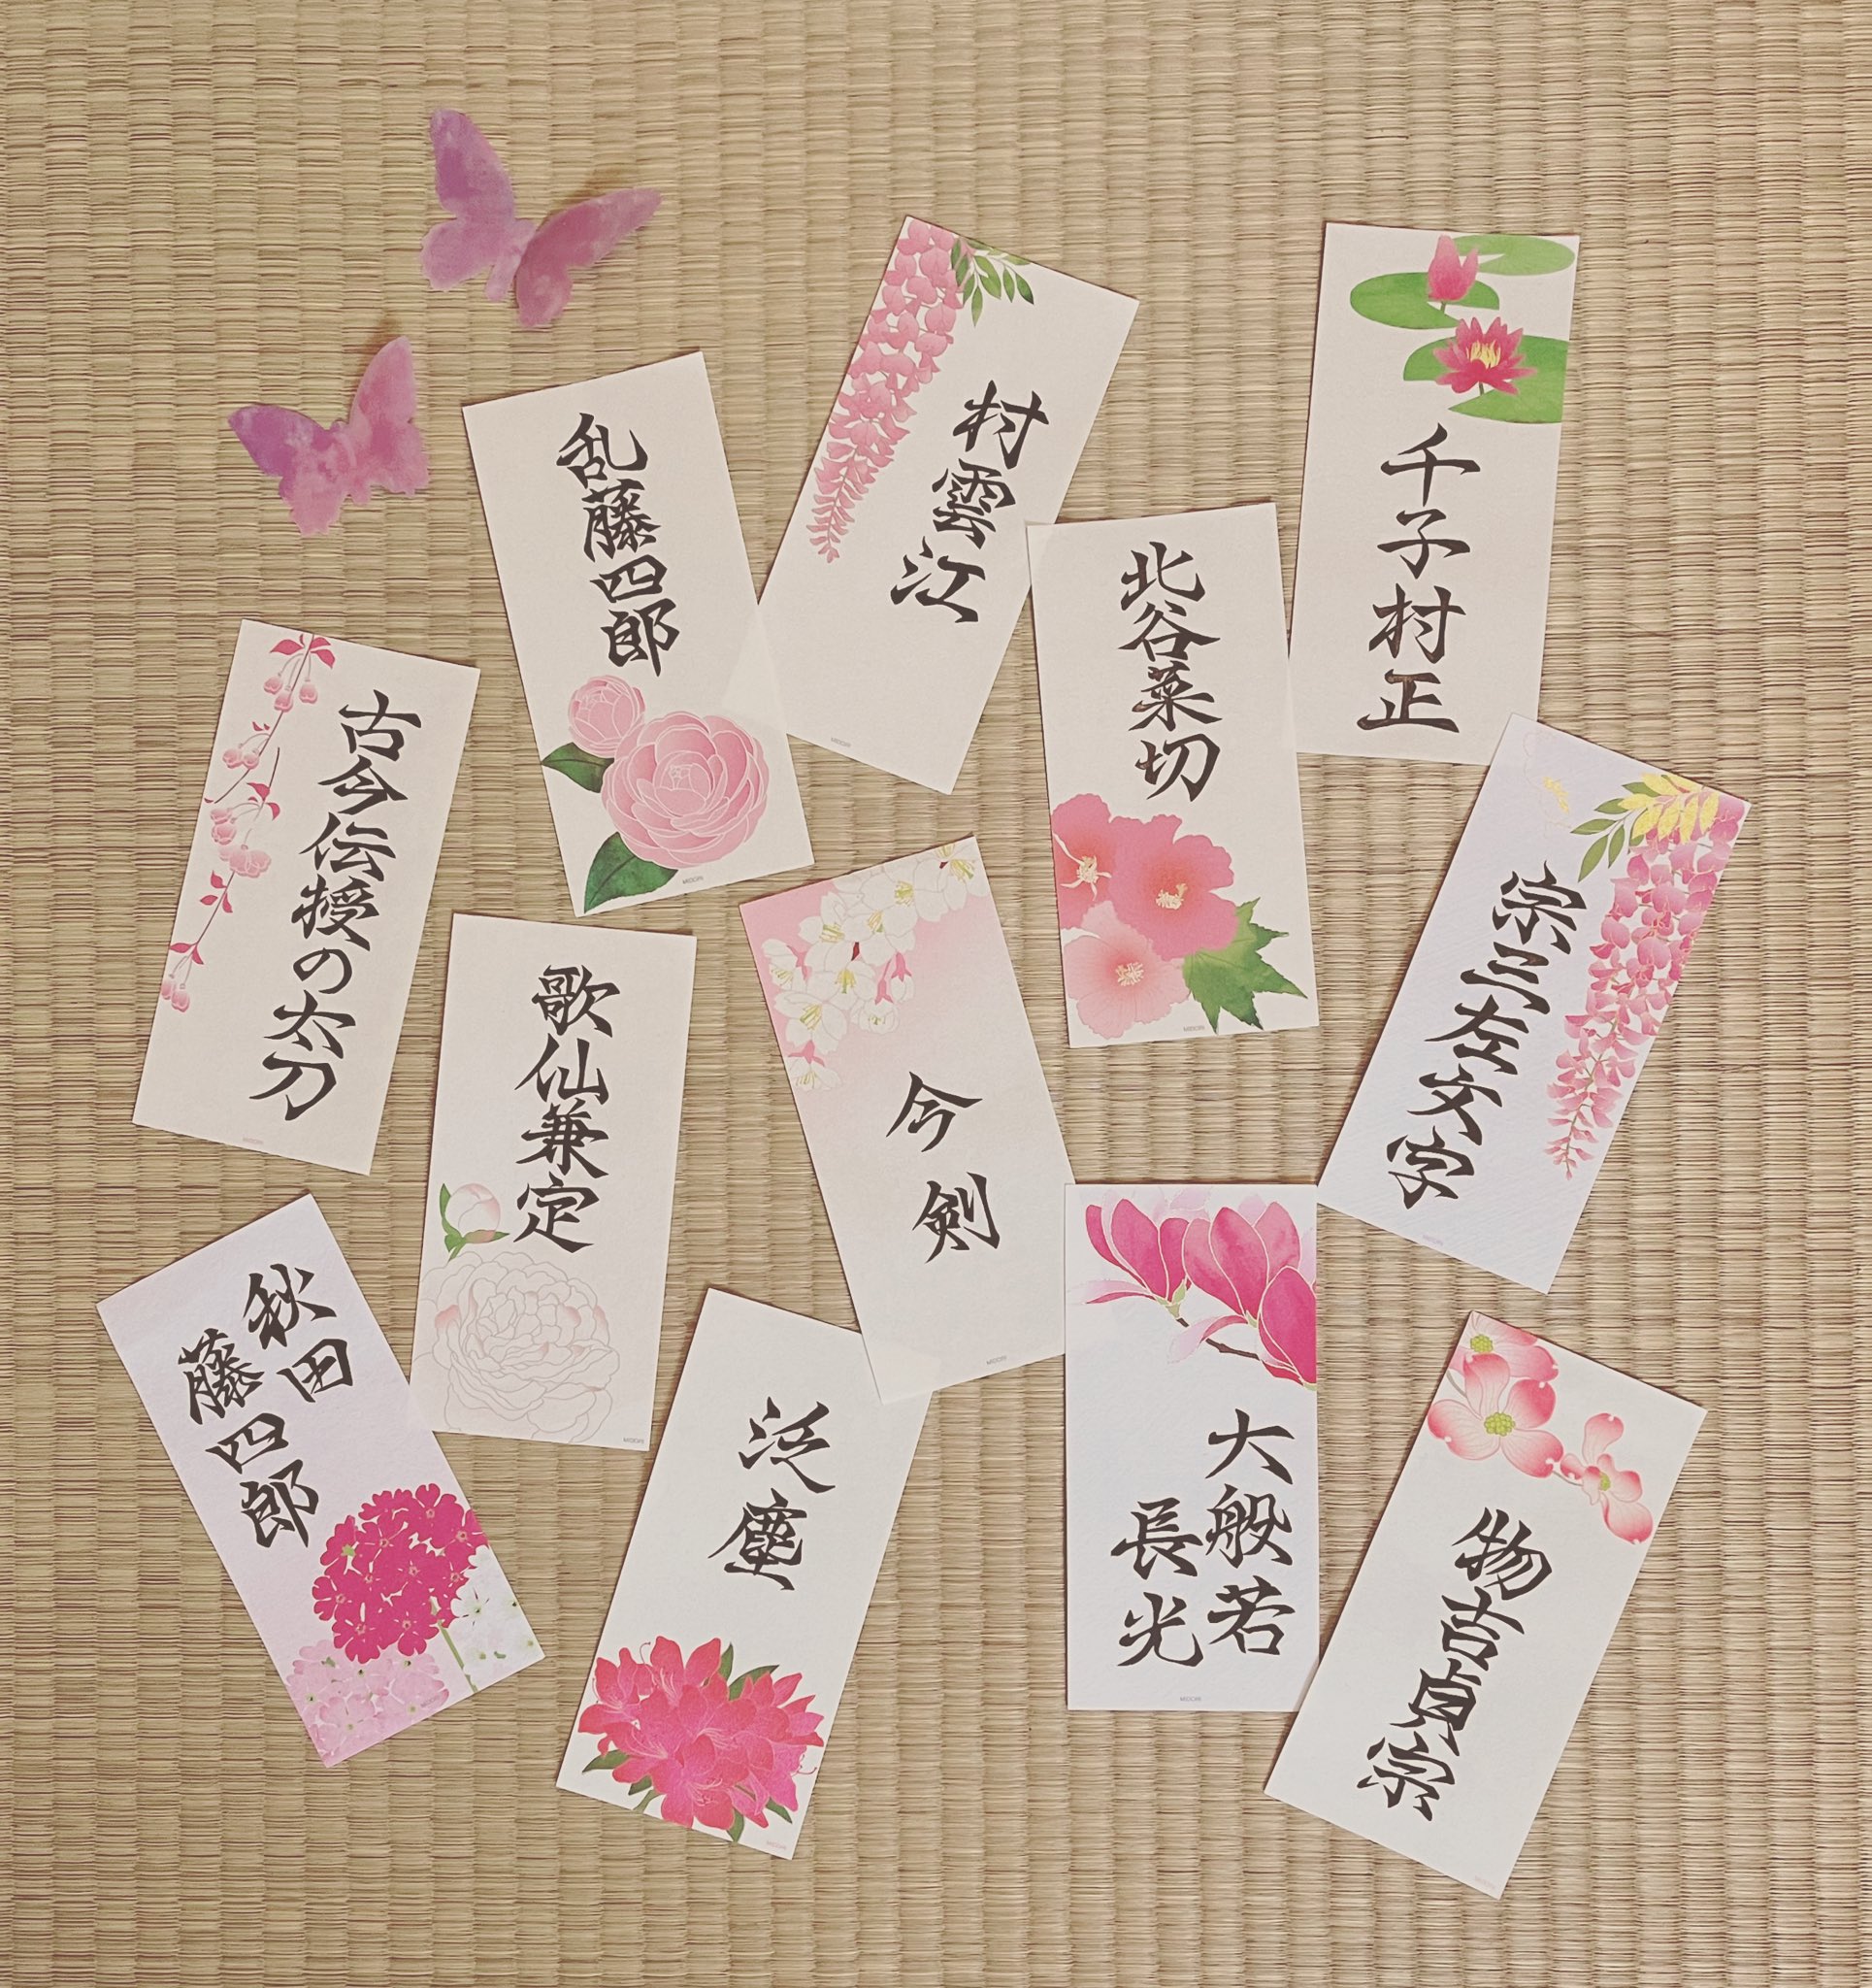 村雲江
千子村正
乱藤四郎
北谷菜切
古今伝授の太刀
宗三左文字
歌仙兼定
今剣
秋田
藤四郎
泛塵
大般若
長光
物吉貞宗
MIDORI
MIDORI
MIDORI
MIDORI
MIDORI
MIDORI
MIDORI
MIDORI
MIDORI
MIDORI
MIDORI